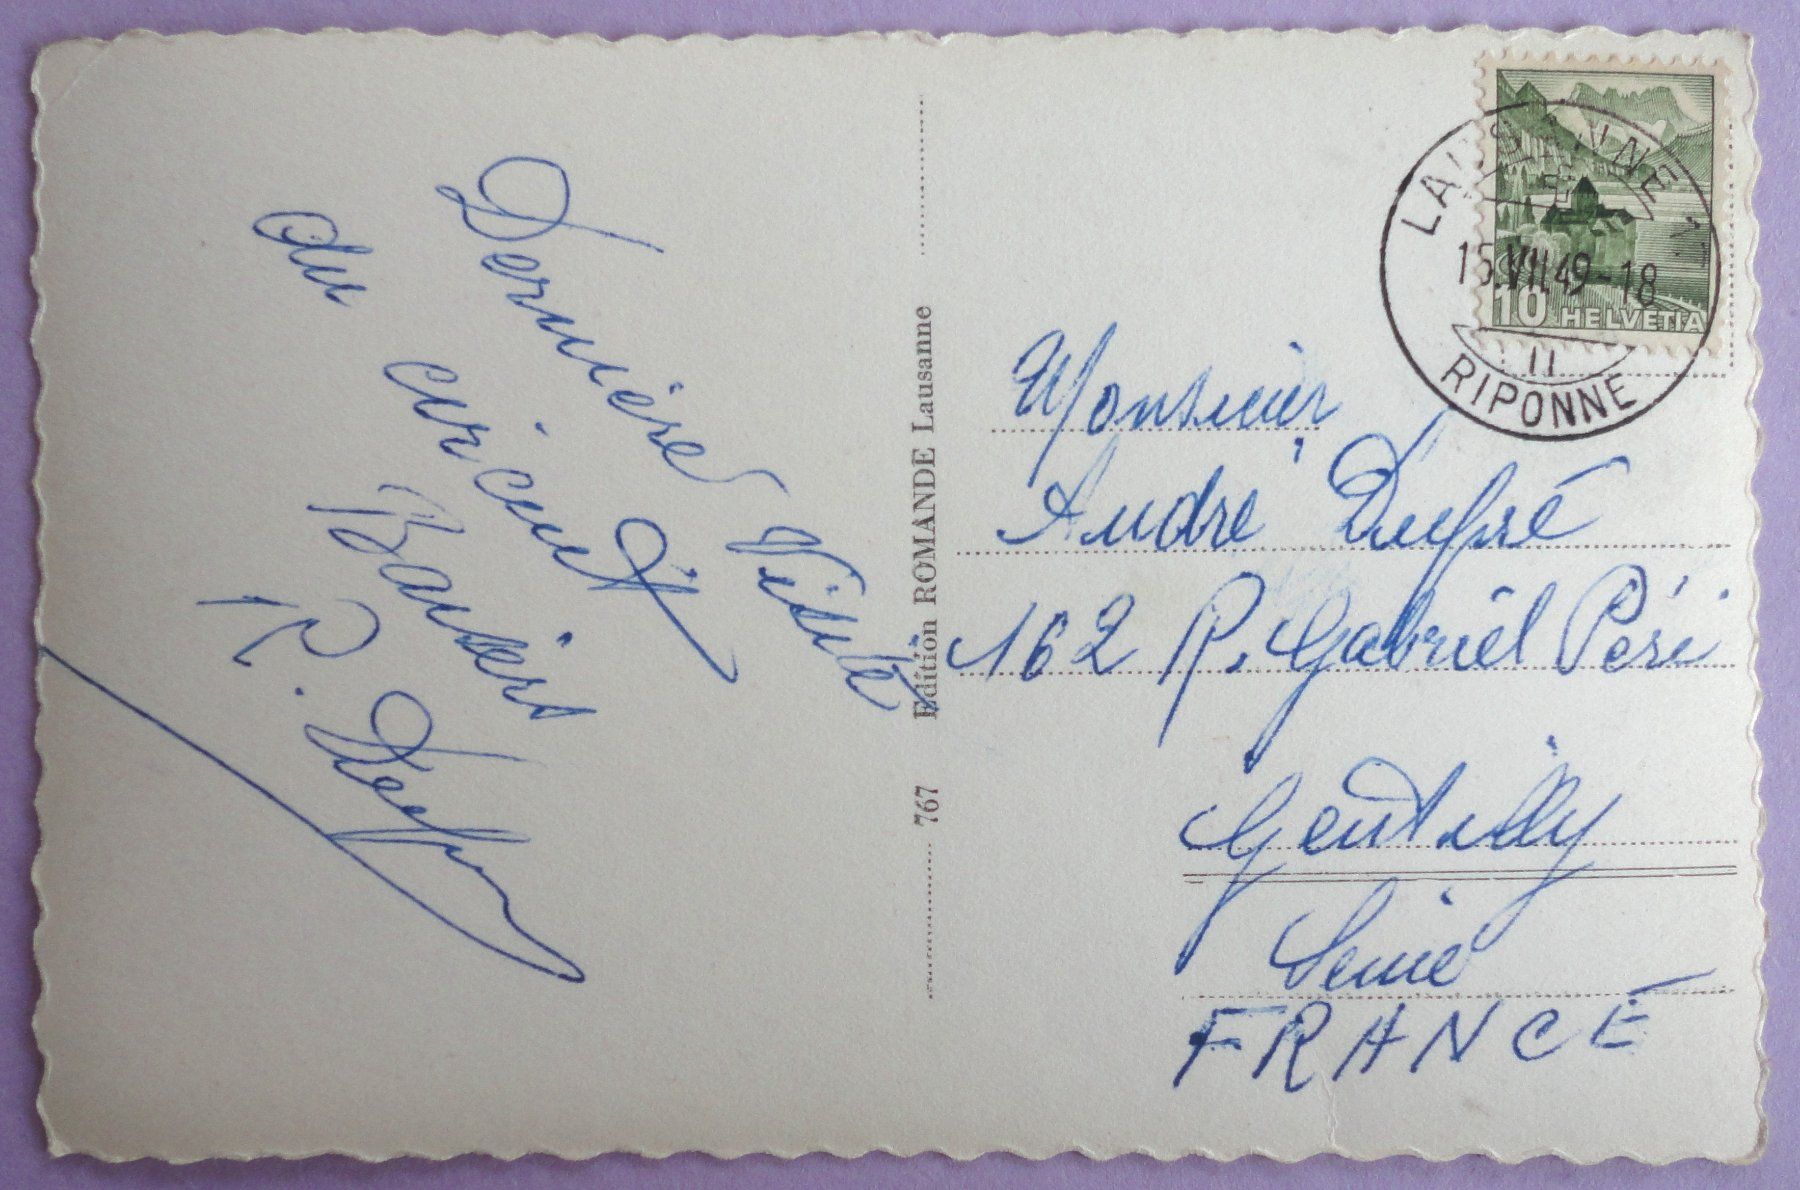 Dernière Visite
du circuit
Baisers
R. Dupré
767 Edition ROMANDE Lausanne
LAUSANNE 1
15.VII.49-18
RIPONNE
10 HELVETIA
Monsieur
André Dupré
162 R. Gabriel Péri
Gentilly
Seine
FRANCE